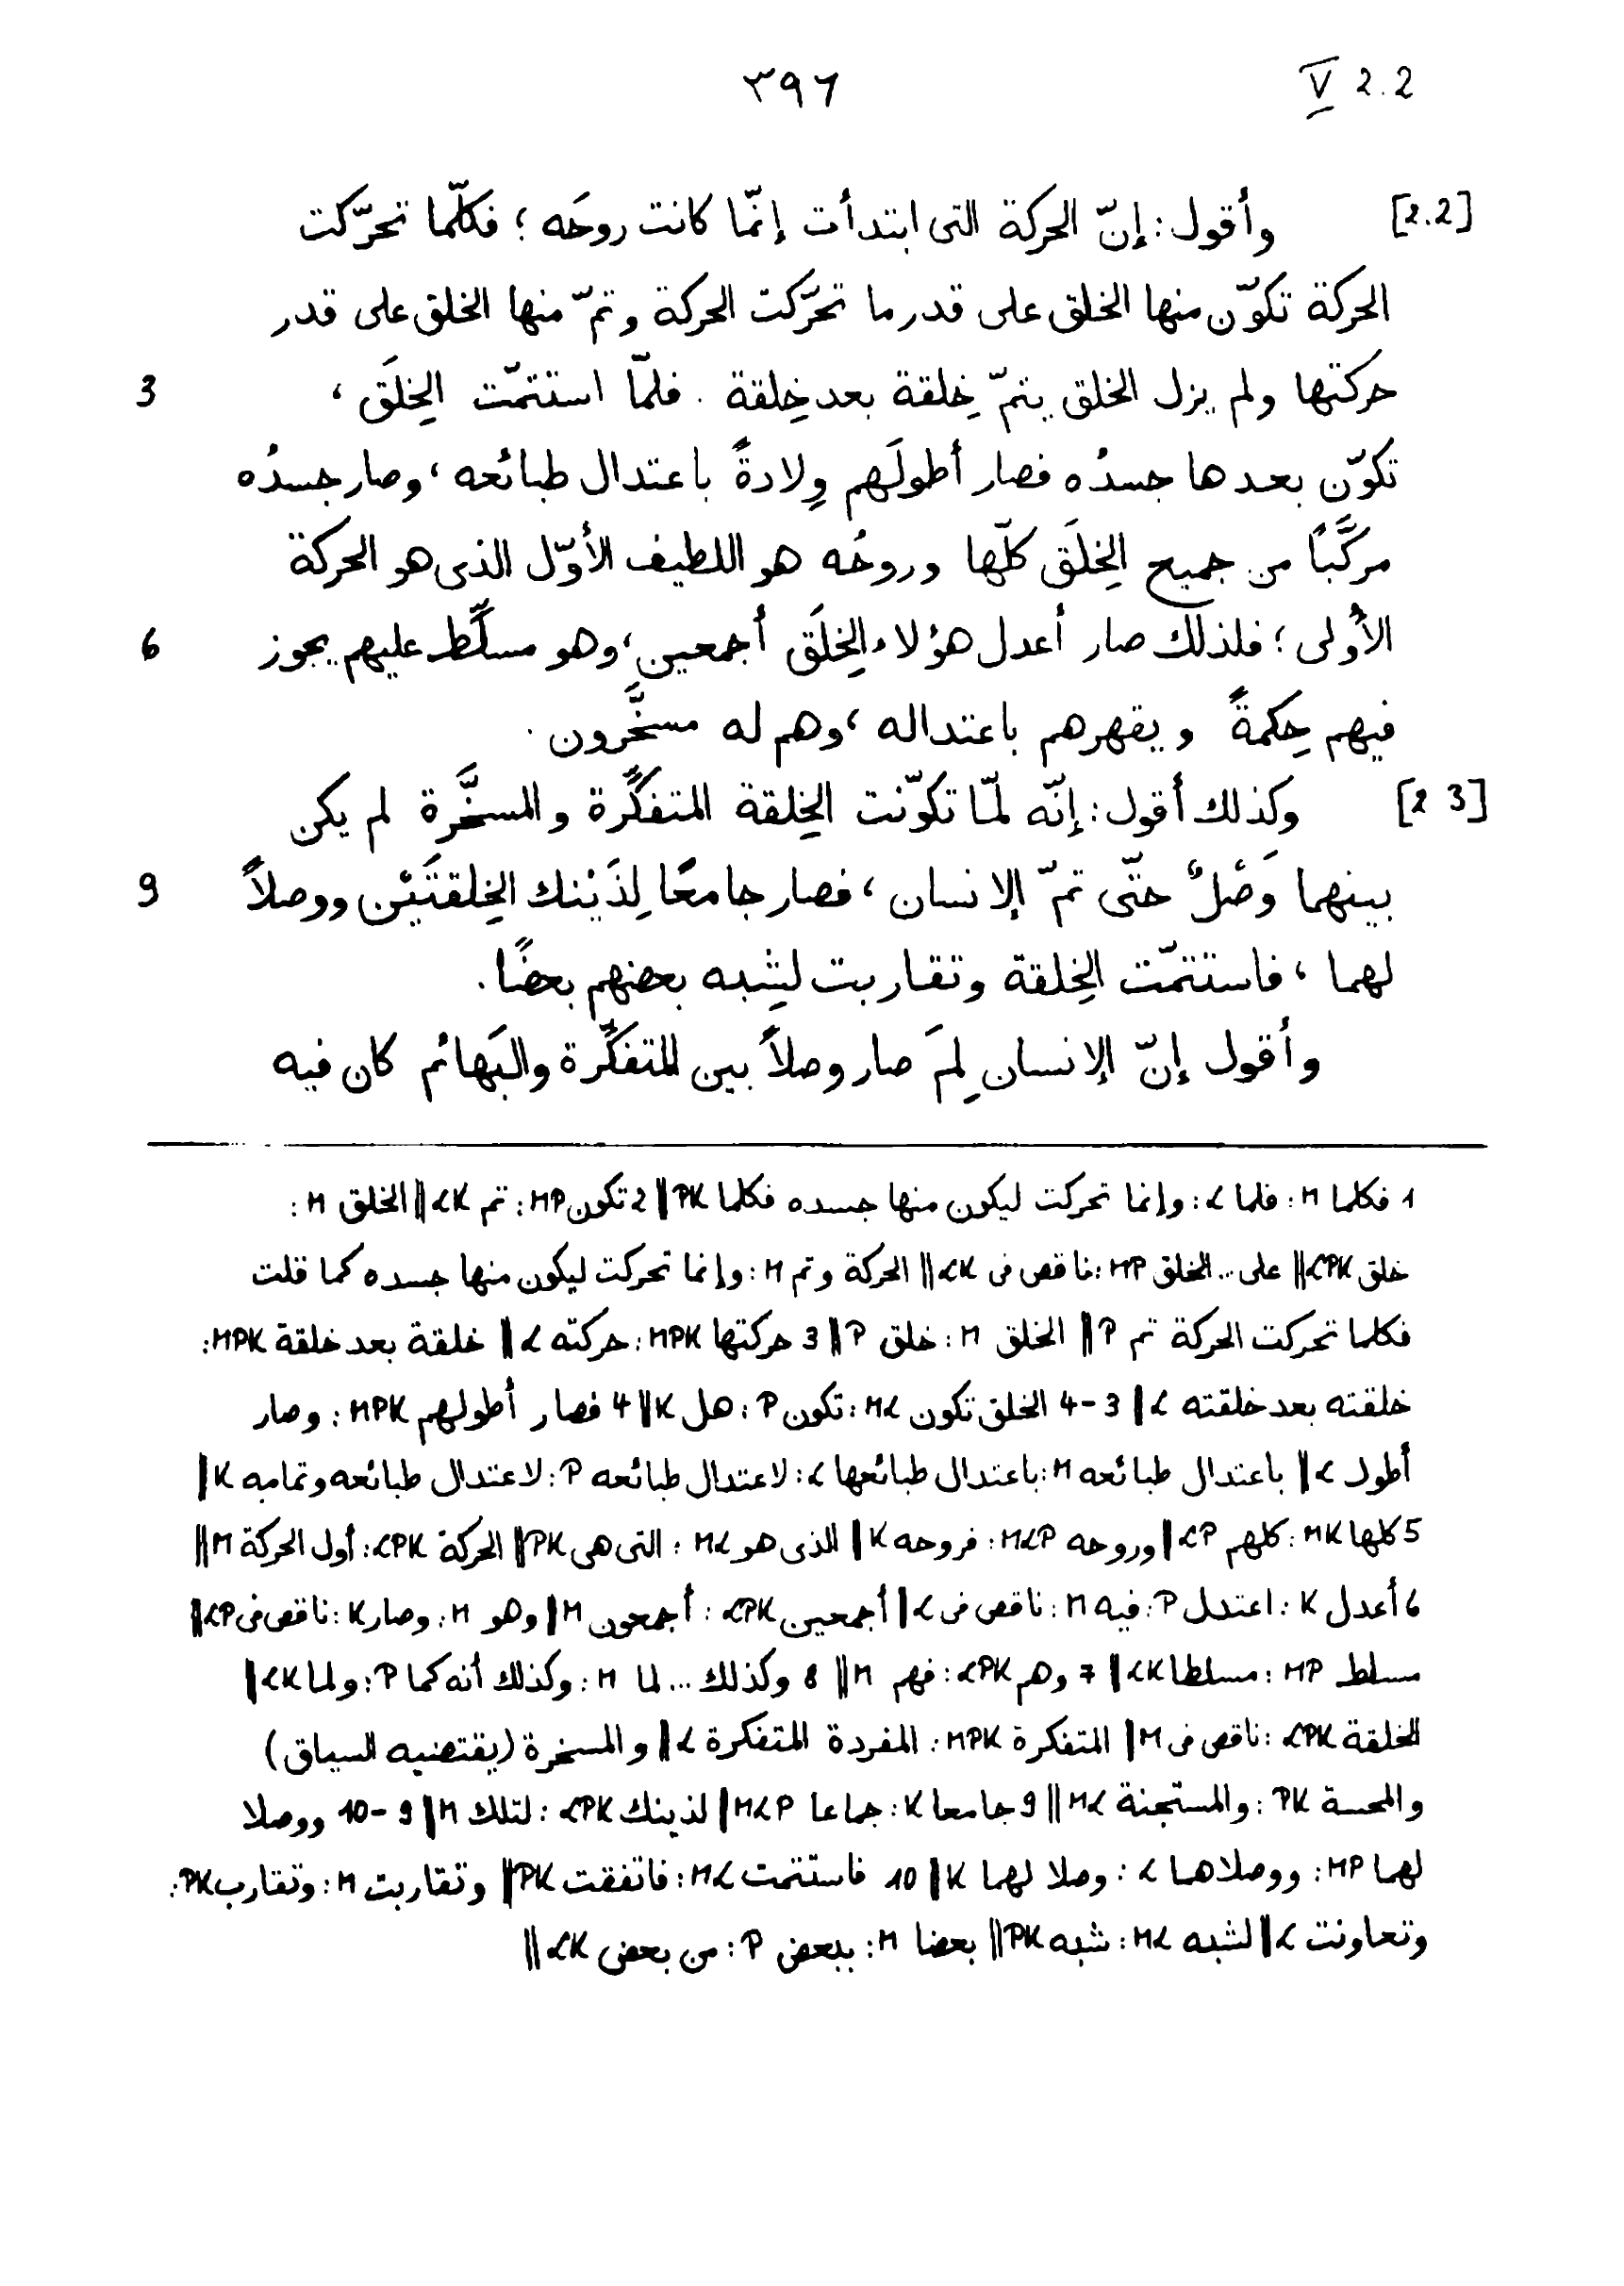 ٣٩٦ V 2.2
[2.2] وأقول: إنّ الحركة التى ابتدأت إنّما كانت روحَه؛ فكلّما تحرّكت
الحركة تكوّن منها الخلق على قدر ما تحرّكت الحركة وتمّ منها الخلق على قدر
3 حركتها ولم يزل الخلق يتمّ خِلقة بعد خِلقة. فلمّا استتمّت الخِلَق،
تكوّن بعدها جسدُه فصار أطولَهم وِلادةً باعتدال طبائعه، وصار جسدُه
مركَّبًا من جميع الخِلَق كلّها وروحُه هو اللطيف الأوّل الذى هو الحركة
6 الأُولى؛ فلذلك صار أعدل هؤلاء الخِلَق أجمعين، وهو مسلَّط عليهم يجوز
فيهم حِكمةً ويقهرهم باعتداله، وهم له مسخَّرون.
[2 3] وكذلك أقول: إنّه لمّا تكوّنت الخِلقة المتفكِّرة والمسخَّرة لم يكن
9 بينهما وَصْلٌ حتّى تمّ الإنسان، فصار جامعًا لِذَيْنك الخِلقتَيْن ووصلاً
لهما، فاستتمّت الخِلقة وتقاربت لشِبه بعضهم بعضًا.
وأقول إنّ الإنسان لِمَ صار وصلاً بين المتفكِّرة والبَهائم كان فيه
1 فكلما M: فلما L: وإنما تحركت ليكون منها جسده فكلما PK || 2 تكون MP: تم LK || الخلق M:
خلق LPK || على... الخلق MP: ناقص فى LK || الحركة وتم M: وإنما تحركت ليكون منها جسده كما قلت
فكلما تحركت الحركة تم P || الخلق M: خلق P || 3 حركتها MPK: حركته L || خلقة بعد خلقة MPK:
خلقته بعد خلقته L || 3-4 الخلق تكون ML: تكون P: هل K || 4 فصار أطولهم MPK: وصار
أطول L || باعتدال طبائعه M: باعتدال طبائعها L: لاعتدال طبائعه P: لاعتدال طبائعه وتمامه K ||
5 كلها MK: كلهم LP || وروحه MLP: فروحه K || الذى هو ML: التى هى PK || الحركة LPK: أول الحركة M ||
6 أعدل K: اعتدل P: فيه M: ناقص فى L || أجمعين LPK: أجمعون M || وهو M: وصار K: ناقص فى LP ||
مسلط MP: مسلطا LK || 7 وهم LPK: فهم M || 8 وكذلك... لما M: وكذلك أنه كما P: ولما LK ||
الخلقة LPK: ناقص فى M || المتفكرة MPK: المفردة المتفكرة L || والمسخرة (يقتضيه السياق)
والمحسة PK: والمستجنة ML || 9 جامعا K: جماعا MLP || لذينك LPK: لتلك M || 9-10 ووصلا
لهما MP: ووصلاهما L: وصلا لهما K || 10 فاستتمت ML: فاتفقت PK || وتقاربت M: وتقارب PK:
وتعاونت L || لشبه ML: شبه PK || بعضا M: ببعض P: من بعض LK ||